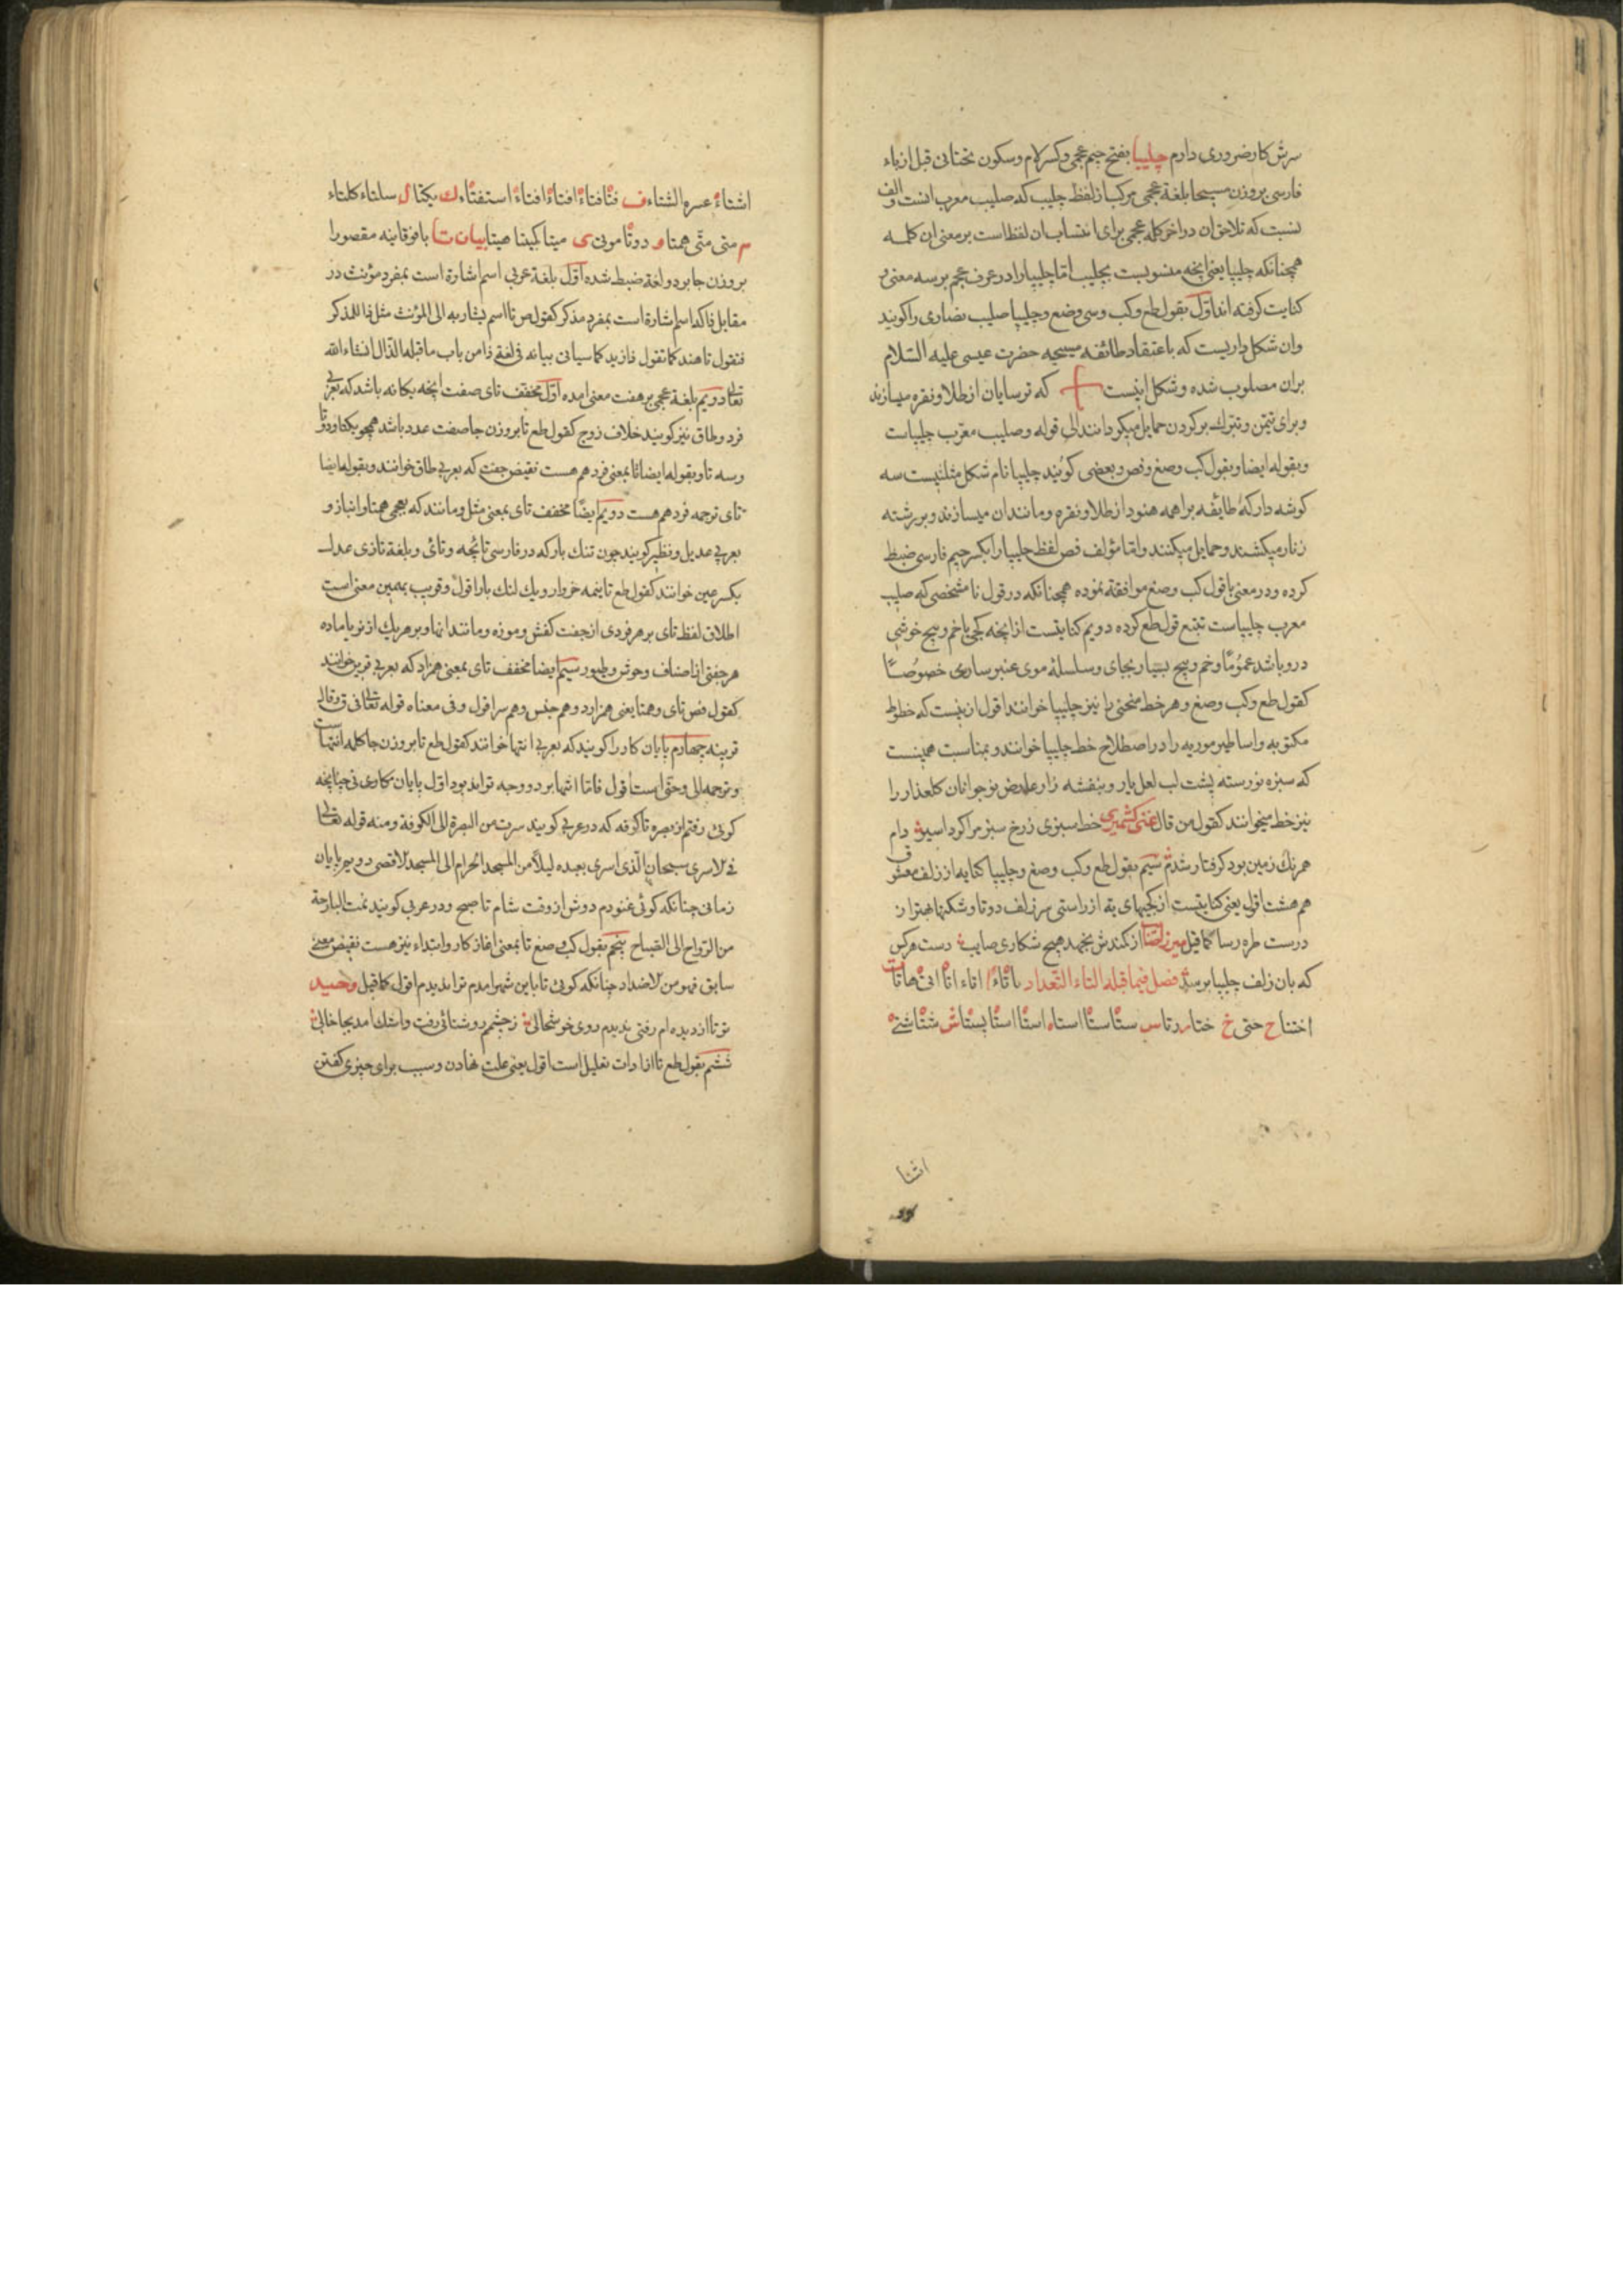 سرش کار ضروری دارم چلیپا بفتح جیم عجمی و کسر لام و سکون تحتانی قبل از باء
فارسی بروزن مسیحا بلغة عجمی مرکب از لفظ چلیب که صلیب معرب انست و الف
نسبت که تلاحق ان در اخر کلمه عجمی برای انتساب ان لفظ است بر معنی ان کلمه
همچنانکه چلیپا یعنی انچه منسوبست بچلیب اما چلیپا را در عرف عجم بر سه معنی بر
کنایت کرفته اند اوّل بقول طع وکب وسی وضع و چلیپا صلیب نصاری را کویند
وان شکل داریست که باعتقاد طائفه مسیحیه حضرت عیسی علیه السّلام
بران مصلوب شده و شکل اینست که ترسایان از طلا و نقره میسازند
و برای تیمّن و تبرّک بر کردن حمایل میکردانند الی قوله و صلیب معرّب چلیپاست
وبقوله ایضا وبقول کب وصغ وفص وبعضی کویند چلیپا نام شکل مثلثیست سه
کوشه دار که طایفه براهمه هنود از طلا و نقره و مانند ان میسازند و بر رشته
زنار میکشند و حمایل میکنند و امّا مؤلف فص لفظ چلیپا را بکسر جیم فارسی ضبط
کرده و در معنی با قول کب وصغ موافقة نموده همچنانکه در قول نا مشخصی که صلیب
معرب چلیپاست تتبع قول طع کرده دویم کنایتست از انچه کجی با خم و پیچ خوشی
درو باشد عمومًا و خم و پیچ بسیار بجای و سلسلهٔ موی عنبر سارای خصوصًا
کقول طع وکب وصغ و هر خط منحنی را نیز چلیپا خوانند اقول ازینست که خطوط
مکتوبه و اساطیر موربه را در اصطلاح خط چلیپا خوانند و بمناسبت همینست
که سبزه نورسته پشت لب لعل یار و بنفشه زار عارض نوجوانان کلعذار را
نیز خط میخوانند کقول من قال غنی کشمیری خط سبزی زرخ سبز مرا کرد اسیر دام
همرنک زمین بود کرفتار شدم سیّم بقول طع وکب وصغ و چلیپا کنایه از زلف معشوق
هم هست اقول یعنی کنایتست از کجیهای به از راستی سر زلف دوتا و شکنها بهتر از
درست طره رسا کما قیل میرزا صائبا از کمندش بجهد هیچ شکاری صایب دست هرکس
که بان زلف چلیپا برسد فصل فیما قبله التاء التّعداد
اختتا ح حتی خ ختا ر رتا س ستا
اثنا
اشتاءً عسره الشتاء ف فتا فتاءً افتاءً استفتاء ک یکتا ل سلتاء کلتاء
م متی متّی همتا و دوتا موتی ی میتا کیتا هیتا بیان تا بافوقانیه مقصورا
بروزن جا بر دو لغة ضبط شده اوّل بلغة عربی اسم اشارة است بمفرد مؤنث در
مقابل ذا که اسم اشارة است بمفرد مذکر کقول ص تا اسم یشار به الی المؤنث مثل ذا للمذکر
فتقول تا هند کما تقول ذا زید کما سیاتی بیانه فی لغة ذا من باب ما قبله الذّال انشاء الله
تعالی دویّم بلغة عجمی بر هفت معنی امده اوّل مخفف تای صفت انچه یکانه باشد که بعربی
فرد و طاق نیز کویند خلاف زوج کقول طع تا بروزن جا صفت عدد باشد همچو یکتا و دوتا
وسه تا وبقوله ایضا تا بمعنی فرد هم هست نقیض جفت که بعربی طاق خوانند وبقوله ایضا
تای ترجمه فرد هم هست دویّم ایضًا مخفف تای بمعنی مثل و مانند که بعجمی همتا و انباز و
بعربی عدیل و نظیر کویند چون تنک بار که در فارسی تایجه و تائی و بلغة تازی عدل
بکسر عین خوانند کقول طع تا نیمه خروار و یک لنک بار اقول و قریب بهمین معنی است
اطلاق لفظ تای بر هر فردی از جفت کفش و موزه و مانند انها و بر هر یک از نر یا ماده
هر جفتی از اصناف وحوش و طیور سیّم ایضا مخفف تای بمعنی همزاد که بعربی قرین خوانند
کقول فص تای و همتا یعنی همزاد و هم جنس و هم سر اقول و فی معناه قوله تعالی فی ق وقال
قرینه چهارم پایان کار را کویند که بعربی انتها خوانند کقول طع تا بروزن جا کلمه انتهاست
و ترجمه الی و حتّی است اقول فامّا انتها بر دو وجه تواند بود اول پایان مکان چنانچه
کوئی رفتم از بصره تا کوفه که در عربی کویند سرت من البصرة الی الکوفة و منه قوله تعالی
فی الاسری سبحان الّذی اسری بعبده لیلاً من المسجد الحرام الی المسجد الاقصی دویم پایان
زمانی چنانکه کوئی غنودم دوش از وقت شام تا صبح و در عربی کویند نمت البارحة
من الرّواح الی الصّباح پنجم بقول کب وصغ تا بمعنی اغاز کار و ابتداء نیز هست نقیض معنی
سابق فهو من الاضداد چنانکه کوئی تا باین شهر امدم ترا ندیدم اقول کما قیل وحید
تو تا از دیده ام رفتی ندیدم روی خوشحالی ز چشمم روشنائی رفت و اشک امد بجا خالی
ششم بقول طع تا از ادات تعلیل است اقول یعنی علت نهادن و سبب برای چیزی کفتن